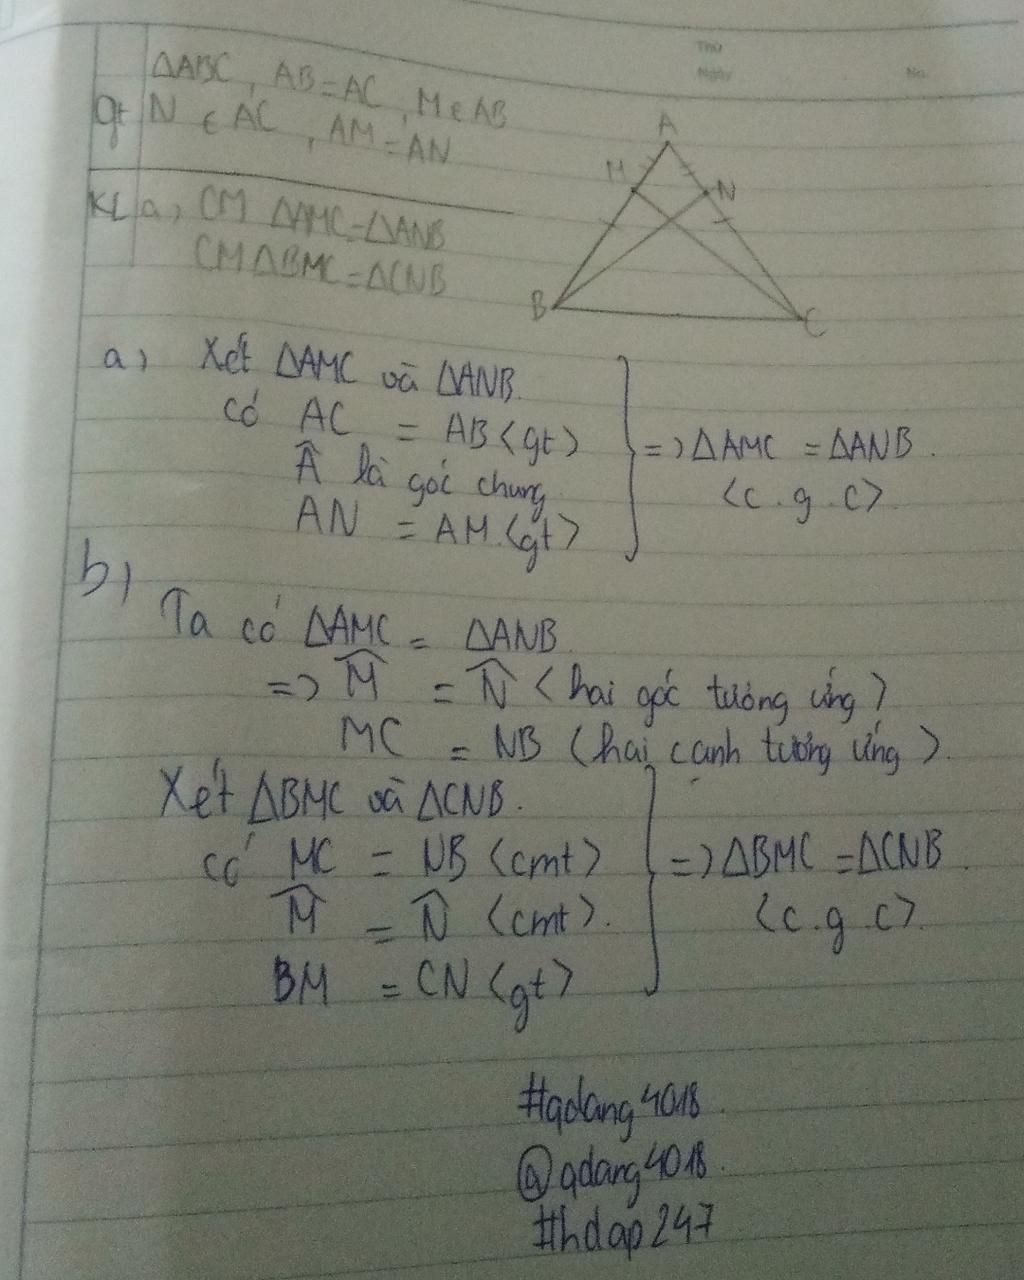 Thứ
Ngày No.
ΔABC, AB = AC, M ∈ AB
gt N ∈ AC, AM = AN
KL a, CM ΔAMC = ΔANB
CM ΔBMC = ΔCNB
A
M N
B C
a, Xét ΔAMC và ΔANB.
có AC = AB <gt>
 là góc chung
AN = AM <gt>
=> ΔAMC = ΔANB.
<c.g.c>
b,
Ta có ΔAMC = ΔANB
=> M̂ = N̂ <hai góc tương ứng>
MC = NB <hai cạnh tương ứng>.
Xét ΔBMC và ΔCNB.
có MC = NB <cmt>
M̂ = N̂ <cmt>.
BM = CN <gt>
=> ΔBMC = ΔCNB.
<c.g.c>
#qdang4018
@qdang4018.
#hdap247